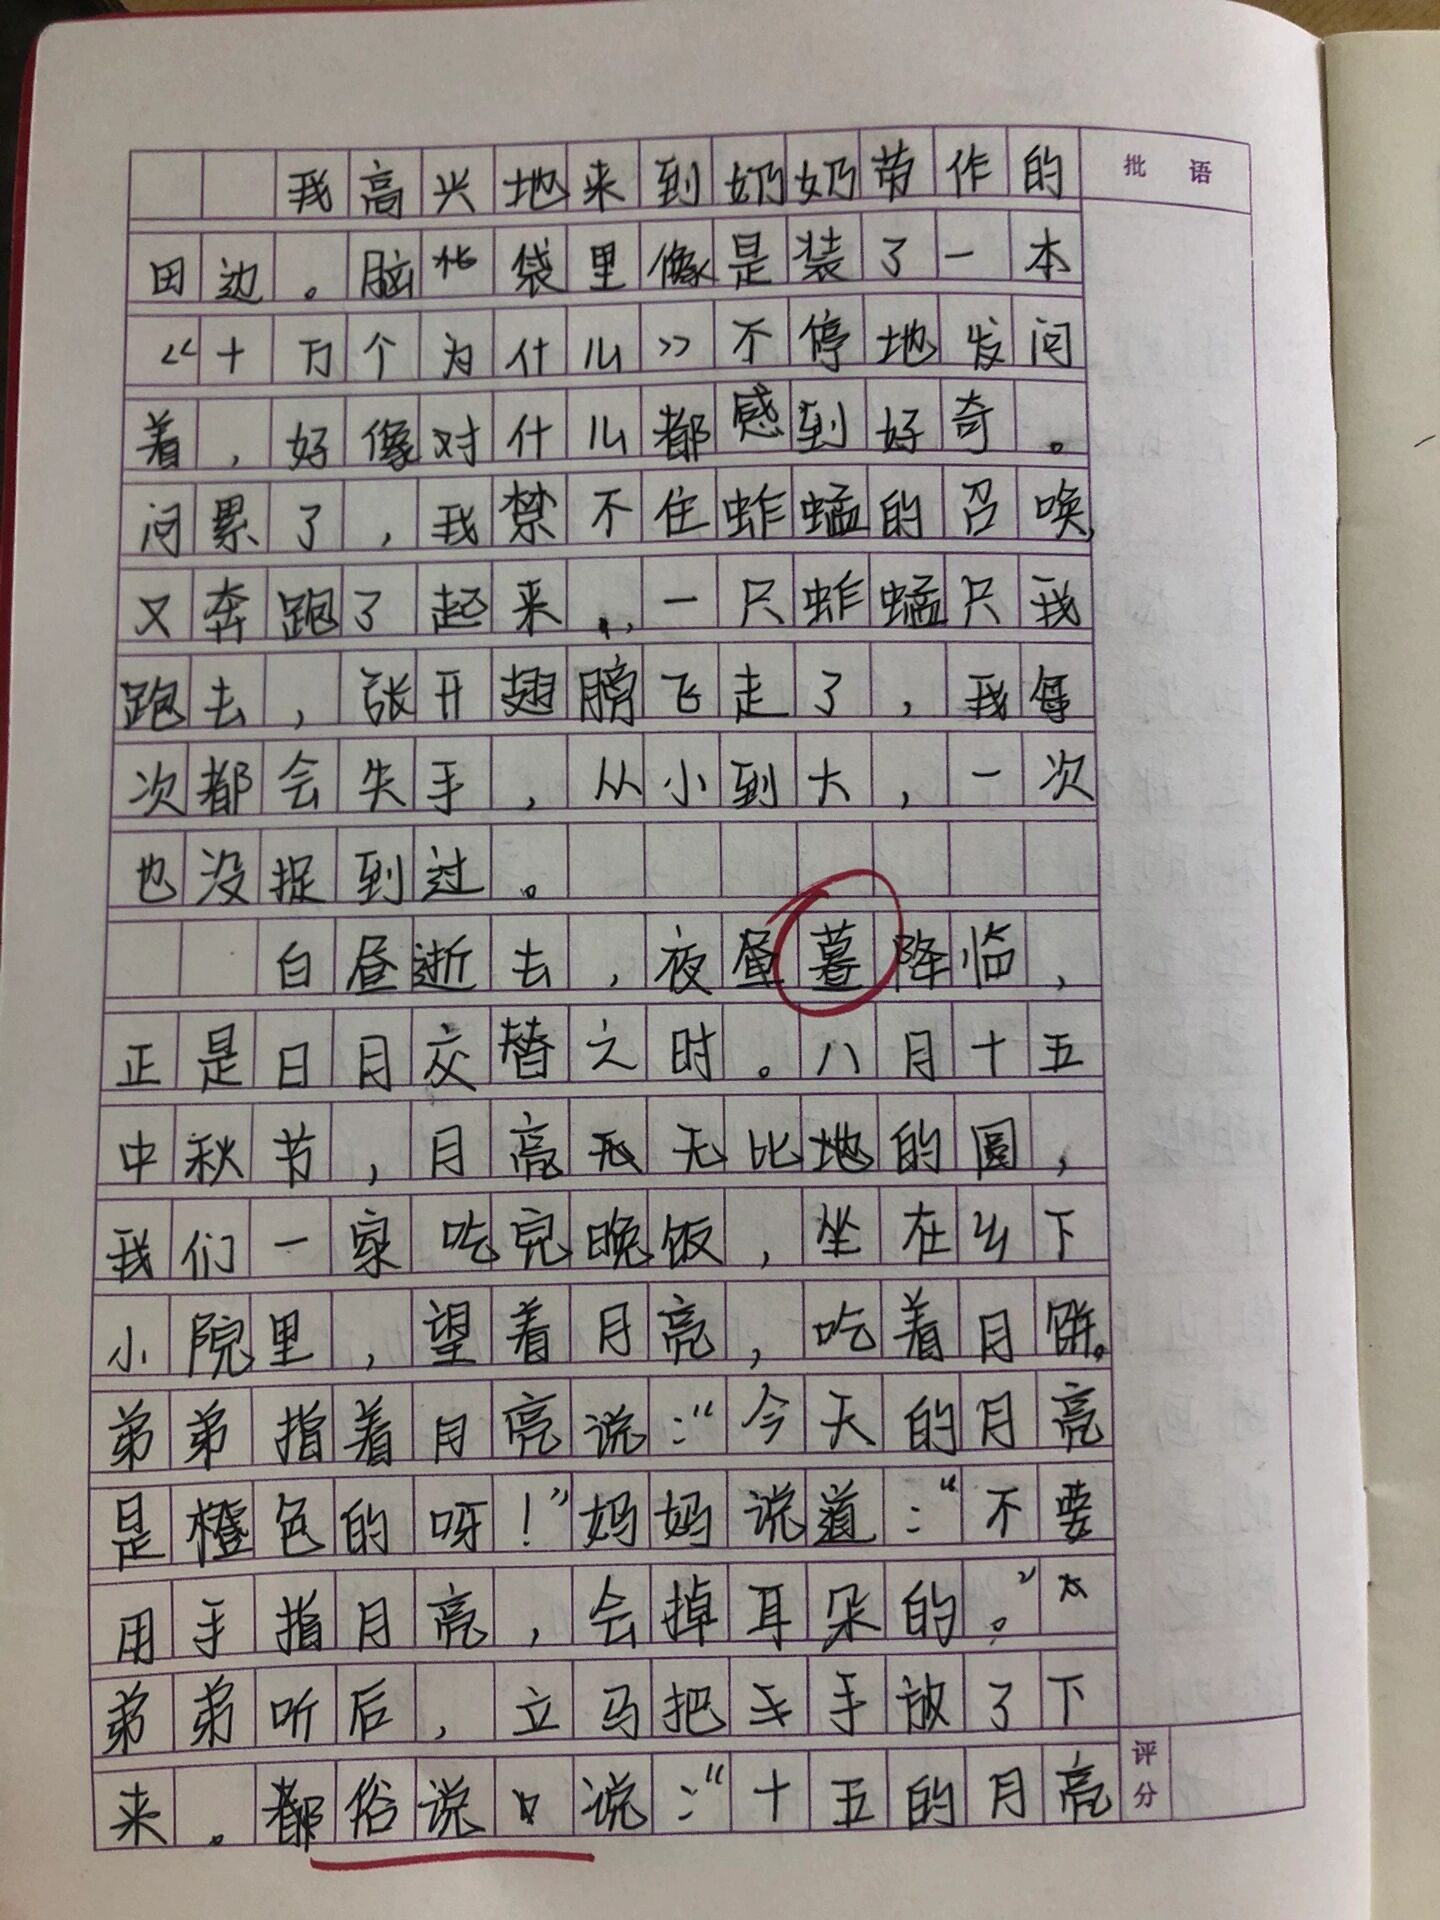 我高兴地来到奶奶劳作的
批 语
田边。脑袋里像是装了一本
《十万个为什么》不停地发问
着，好像对什么都感到好奇。
问累了，我禁不住蚱蜢的召唤，
又奔跑了起来，一只蚱蜢只我
跑去，张开翅膀飞走了，我每
次都会失手，从小到大，一次
也没捉到过。
白昼逝去，夜暮降临，
正是日月交替之时。八月十五
中秋节，月亮无比地的圆，
我们一家吃完晚饭，坐在乡下
小院里，望着月亮，吃着月饼。
弟弟指着月亮说：“今天的月亮
是橙色的呀！”妈妈说道：“不要
用手指月亮，会掉耳朵的。”
弟弟听后，立马把手放了下
来。都俗说口说：“十五的月亮
评分